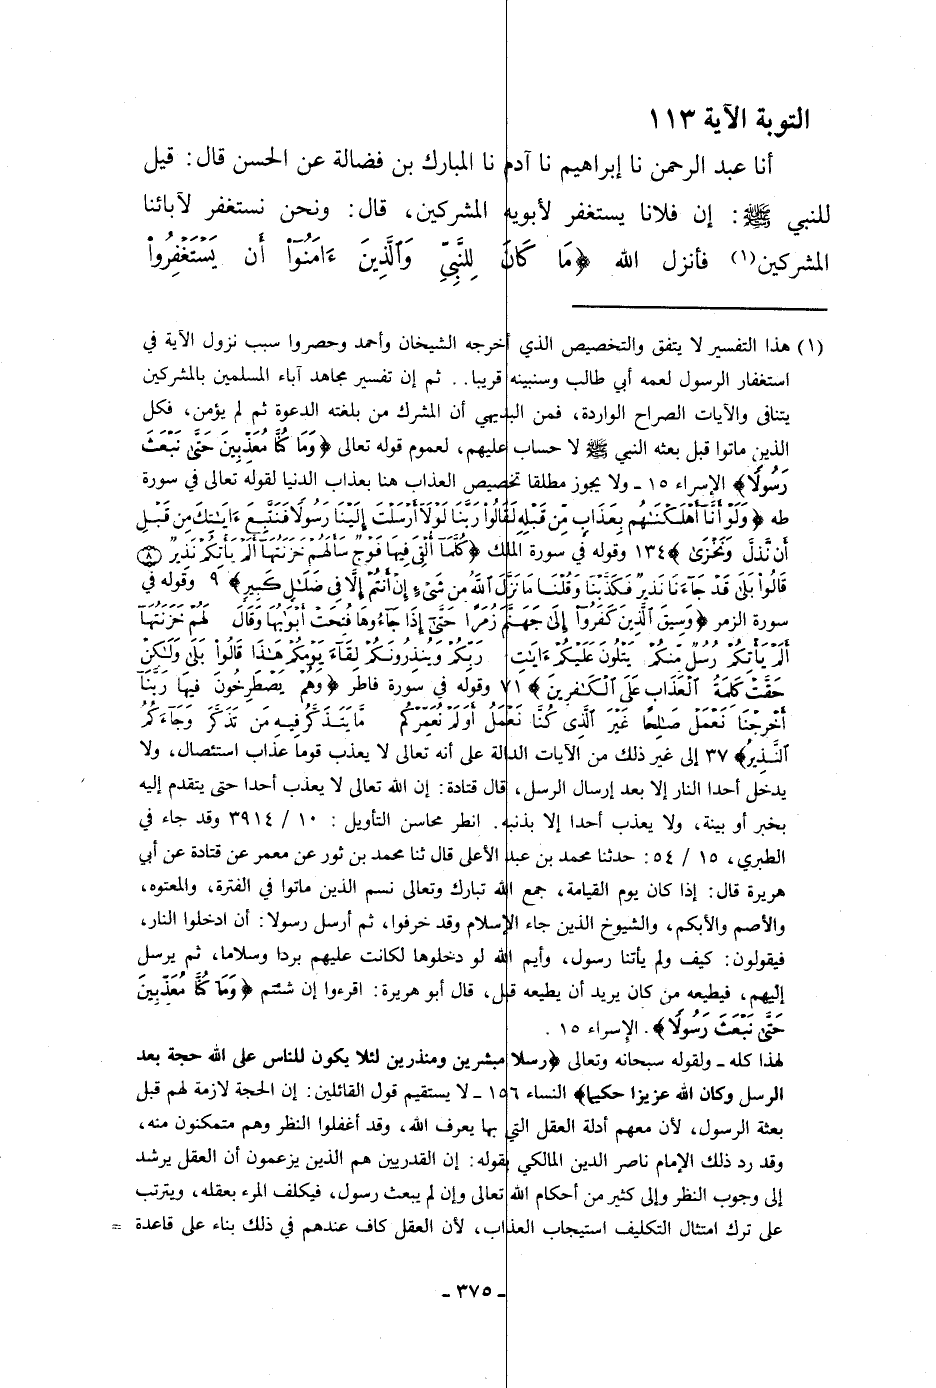 التوبة الآية ١١٣
أنا عبد الرحمن نا إبراهيم نا آدم نا المبارك بن فضالة عن الحسن قال: قيل
للنبي ﷺ: إن فلانا يستغفر لأبويه المشركين، قال: ونحن نستغفر لآبائنا
المشركين(١) فأنزل الله ﴿مَا كَانَ لِلنَّبِيِّ وَٱلَّذِينَ ءَامَنُوٓا۟ أَن يَسْتَغْفِرُوا۟
(١) هذا التفسير لا يتفق والتخصيص الذي أخرجه الشيخان وأحمد وحصروا سبب نزول الآية في
استغفار الرسول لعمه أبي طالب وسنبينه قريبا.. ثم إن تفسير مجاهد آباء المسلمين بالمشركين
يتنافى والآيات الصراح الواردة، فمن البديهي أن المشرك من بلغته الدعوة ثم لم يؤمن، فكل
الذين ماتوا قبل بعثه النبي ﷺ لا حساب عليهم، لعموم قوله تعالى ﴿وَمَا كُنَّا مُعَذِّبِينَ حَتَّىٰ نَبْعَثَ
رَسُولًا﴾ الإسراء ١٥ ـ ولا يجوز مطلقا تخصيص العذاب هنا بعذاب الدنيا لقوله تعالى في سورة
طه ﴿وَلَوْ أَنَّآ أَهْلَكْنَٰهُم بِعَذَابٍ مِّن قَبْلِهِۦ لَقَالُوا۟ رَبَّنَا لَوْلَآ أَرْسَلْتَ إِلَيْنَا رَسُولًا فَنَتَّبِعَ ءَايَٰتِكَ مِن قَبْلِ
أَن نَّذِلَّ وَنَخْزَىٰ﴾ ١٣٤ وقوله في سورة الملك ﴿كُلَّمَآ أُلْقِىَ فِيهَا فَوْجٌ سَأَلَهُمْ خَزَنَتُهَآ أَلَمْ يَأْتِكُمْ نَذِيرٌ ٨
قَالُوا۟ بَلَىٰ قَدْ جَآءَنَا نَذِيرٌ فَكَذَّبْنَا وَقُلْنَا مَا نَزَّلَ ٱللَّهُ مِن شَىْءٍ إِنْ أَنتُمْ إِلَّا فِى ضَلَٰلٍ كَبِيرٍ﴾ ٩ وقوله في
سورة الزمر ﴿وَسِيقَ ٱلَّذِينَ كَفَرُوٓا۟ إِلَىٰ جَهَنَّمَ زُمَرًا حَتَّىٰٓ إِذَا جَآءُوهَا فُتِحَتْ أَبْوَٰبُهَا وَقَالَ لَهُمْ خَزَنَتُهَآ
أَلَمْ يَأْتِكُمْ رُسُلٌ مِّنكُمْ يَتْلُونَ عَلَيْكُمْ ءَايَٰتِ رَبِّكُمْ وَيُنذِرُونَكُمْ لِقَآءَ يَوْمِكُمْ هَٰذَا قَالُوا۟ بَلَىٰ وَلَٰكِنْ
حَقَّتْ كَلِمَةُ ٱلْعَذَابِ عَلَى ٱلْكَٰفِرِينَ﴾ ٧١ وقوله في سورة فاطر ﴿وَهُمْ يَصْطَرِخُونَ فِيهَا رَبَّنَآ
أَخْرِجْنَا نَعْمَلْ صَٰلِحًا غَيْرَ ٱلَّذِى كُنَّا نَعْمَلُ أَوَلَمْ نُعَمِّرْكُم مَّا يَتَذَكَّرُ فِيهِ مَن تَذَكَّرَ وَجَآءَكُمُ
ٱلنَّذِيرُ﴾ ٣٧ إلى غير ذلك من الآيات الدالة على أنه تعالى لا يعذب قوما عذاب استئصال، ولا
يدخل أحدا النار إلا بعد إرسال الرسل، قال قتادة: إن الله تعالى لا يعذب أحدا حتى يتقدم إليه
بخبر أو بينة، ولا يعذب أحدا إلا بذنبه. انظر محاسن التأويل: ١٠ / ٣٩١٤ وقد جاء في
الطبري، ١٥ / ٥٤: حدثنا محمد بن عبد الأعلى قال ثنا محمد بن ثور عن معمر عن قتادة عن أبي
هريرة قال: إذا كان يوم القيامة، جمع الله تبارك وتعالى نسم الذين ماتوا في الفترة، والمعتوه،
والأصم والأبكم، والشيوخ الذين جاء الإسلام وقد خرفوا، ثم أرسل رسولا: أن ادخلوا النار،
فيقولون: كيف ولم يأتنا رسول، وأيم الله لو دخلوها لكانت عليهم بردا وسلاما، ثم يرسل
إليهم، فيطيعه من كان يريد أن يطيعه قبل، قال أبو هريرة: اقرءوا إن شئتم ﴿وَمَا كُنَّا مُعَذِّبِينَ
حَتَّىٰ نَبْعَثَ رَسُولًا﴾. الإسراء ١٥ .
لهذا كله ـ ولقوله سبحانه وتعالى ﴿رسلا مبشرين ومنذرين لئلا يكون للناس على الله حجة بعد
الرسل وكان الله عزيزا حكيما﴾ النساء ١٥٦ ـ لا يستقيم قول القائلين: إن الحجة لازمة لهم قبل
بعثة الرسول، لأن معهم أدلة العقل التي بها يعرف الله، وقد أغفلوا النظر وهم متمكنون منه،
وقد رد ذلك الإمام ناصر الدين المالكي بقوله: إن القدريين هم الذين يزعمون أن العقل يرشد
إلى وجوب النظر وإلى كثير من أحكام الله تعالى وإن لم يبعث رسول، فيكلف المرء بعقله، ويترتب
على ترك امتثال التكليف استيجاب العذاب، لأن العقل كاف عندهم في ذلك بناء على قاعدة =
ـ ٣٧٥ ـ